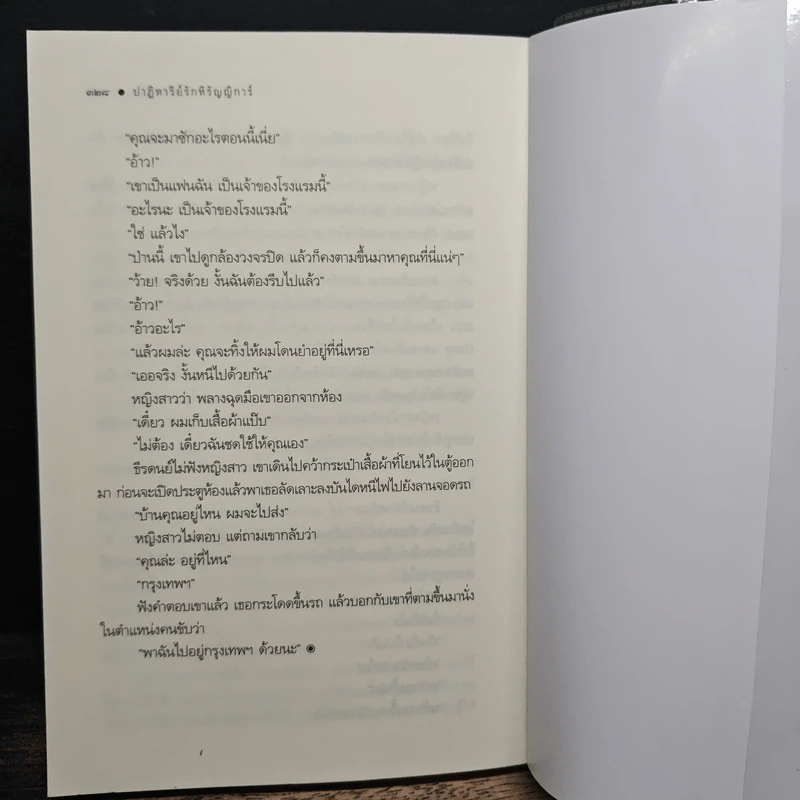 ๓๒๘ ● ปาฏิหาริย์รักหิรัญญิการ์
“คุณจะมาซักอะไรตอนนี้เนี่ย”
“อ้าว!”
“เขาเป็นแฟนฉัน เป็นเจ้าของโรงแรมนี้”
“อะไรนะ เป็นเจ้าของโรงแรมนี้”
“ใช่ แล้วไง”
“ป่านนี้ เขาไปดูกล้องวงจรปิด แล้วก็คงตามขึ้นมาหาคุณที่นี่แน่ๆ”
“ว้าย! จริงด้วย งั้นฉันต้องรีบไปแล้ว”
“อ้าว!”
“อ้าวอะไร”
“แล้วผมล่ะ คุณจะทิ้งให้ผมโดนยำอยู่ที่นี่เหรอ”
“เออจริง งั้นหนีไปด้วยกัน”
หญิงสาวว่า พลางฉุดมือเขาออกจากห้อง
“เดี๋ยว ผมเก็บเสื้อผ้าแป๊บ”
“ไม่ต้อง เดี๋ยวฉันชดใช้ให้คุณเอง”
ธีรดนย์ไม่ฟังหญิงสาว เขาเดินไปคว้ากระเป๋าเสื้อผ้าที่โยนไว้ในตู้ออก
มา ก่อนจะเปิดประตูห้องแล้วพาเธอลัดเลาะลงบันไดหนีไฟไปยังลานจอดรถ
“บ้านคุณอยู่ไหน ผมจะไปส่ง”
หญิงสาวไม่ตอบ แต่ถามเขากลับว่า
“คุณล่ะ อยู่ที่ไหน”
“กรุงเทพฯ”
ฟังคำตอบเขาแล้ว เธอกระโดดขึ้นรถ แล้วบอกกับเขาที่ตามขึ้นมานั่ง
ในตำแหน่งคนขับว่า
“พาฉันไปอยู่กรุงเทพฯ ด้วยนะ” ◉